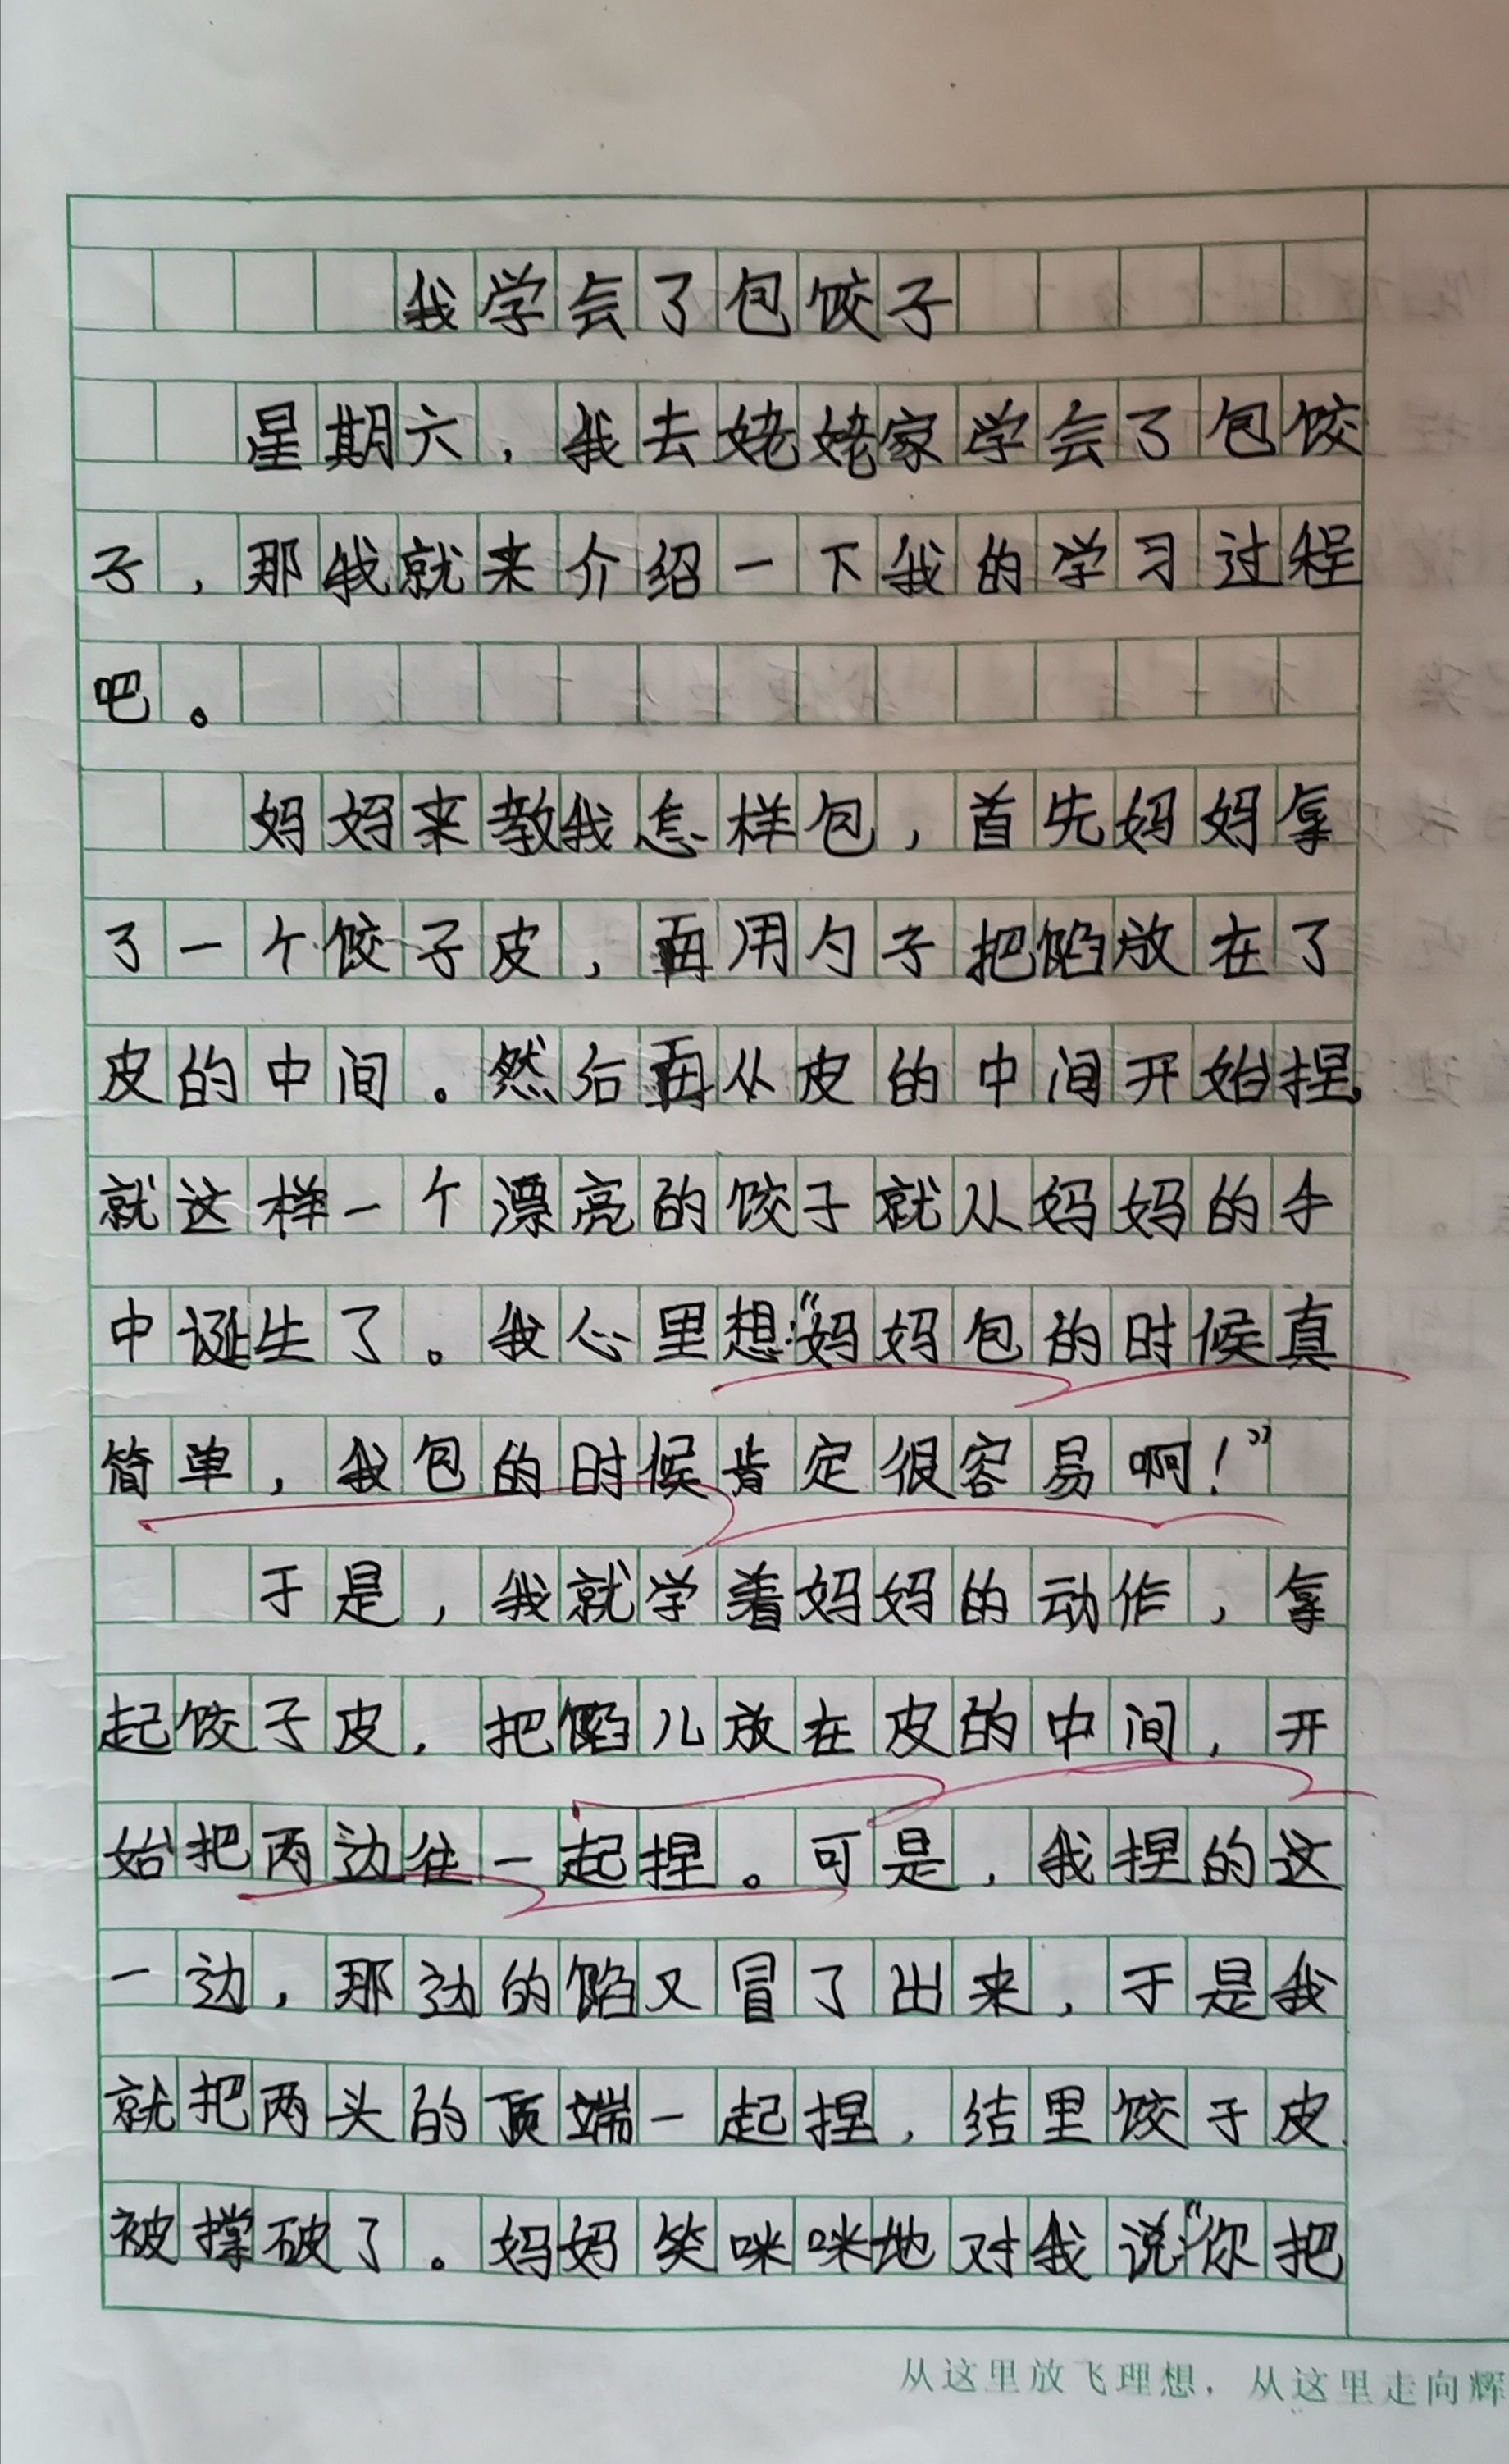 我学会了包饺子
星期六，我去姥姥家学会了包饺
子，那我就来介绍一下我的学习过程
吧。
妈妈来教我怎样包，首先妈妈拿
了一个饺子皮，再用勺子把馅放在了
皮的中间。然后再从皮的中间开始捏，
就这样一个漂亮的饺子就从妈妈的手
中诞生了。我心里想：“妈妈包的时候真
简单，我包的时候肯定很容易啊！”
于是，我就学着妈妈的动作，拿
起饺子皮，把馅儿放在皮的中间，开
始把两边往一起捏。可是，我捏的这
一边，那边的馅又冒了出来，于是我
就把两头的顶端一起捏，结里饺子皮
被撑破了。妈妈笑咪咪地对我说：“你把
从这里放飞理想，从这里走向辉